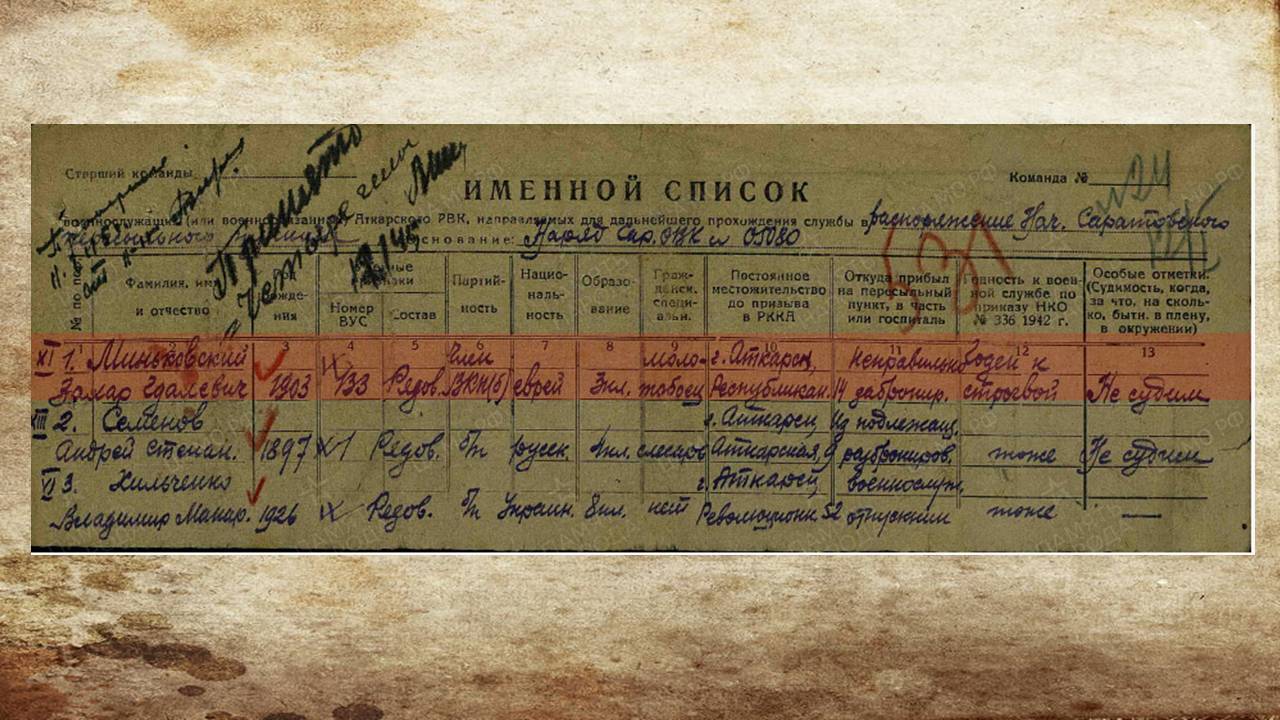 Старший команды
Принято
четыре чело
ИМЕННОЙ СПИСОК
Команда №
военнослужащих (или военнообязанных) Аткарского РВК, направляемых для дальнейшего прохождения службы в распоряжение Нач. Саратовского
пересыльного
Основание: Наряд Сар. ОВК № 05080
№ по пор. Фамилия, имя и отчество
Год рождения
Номер ВУС
Состав
Партийность
Национальность
Образование
Гражденск. специальн.
Постоянное местожительство до призыва в РККА
Откуда прибыл на пересыльный пункт, в часть или госпиталь
Годность к военной службе по приказу НКО № 336 1942 г.
Особые отметки. (Судимость, когда, за что, на сколько, бытн. в плену, в окружении)
1 2 3 4 5 6 7 8 9 10 11 12 13
XI 1. Миньковский Член моло- г. Аткарск, неправильно Годен к
Залмар Гдалевич 1903 133 Рядов. ВКП(б) еврей 3кл. тобоец Республикан. 14 забронир. строевой Не судим
XIII 2. Семенов г. Аткарск, Из подлежащ.
Андрей Степан. 1897 XI Рядов. б/п русск. 4кл. слесарь Аткарская, 9 разброниров. тоже Не судим
VI 3. Хильченко г. Аткарск, военнослуж.
Владимир Макар. 1926 IX Рядов. б/п Украин. 8кл. нет Революцион. 52 отпускник тоже —